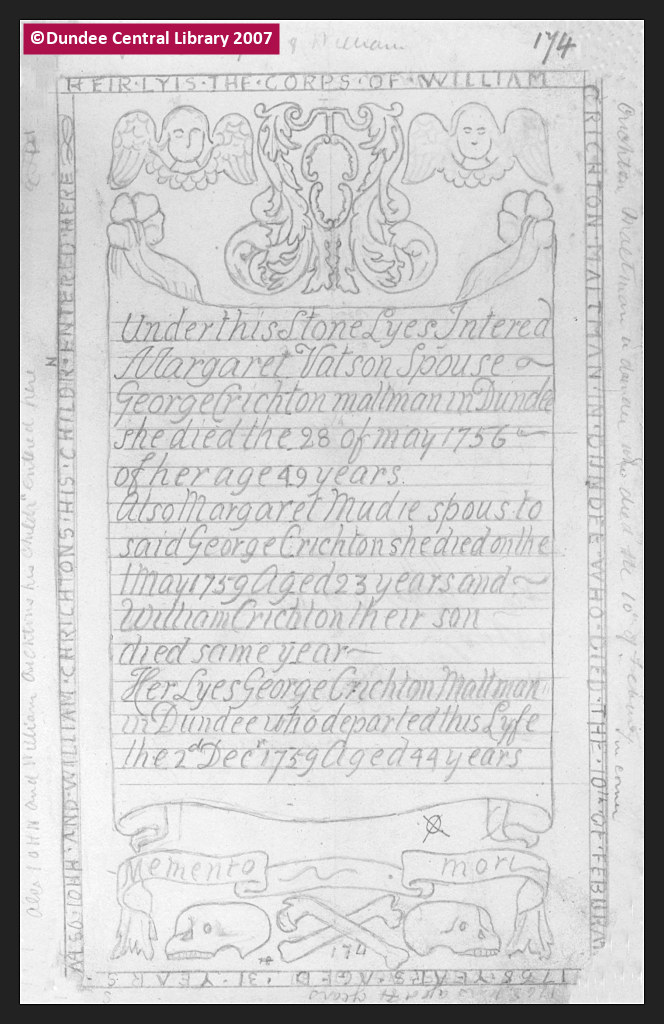 ©Dundee Central Library 2007
William
174
HEIR·LYIS·THE·CORPS·OF·WILLIAM
CRICHTON·MALTMAN·IN·DUNDEE·WHO·DIED·THE·10TH·OF·FEBURR
1768·YEARS·AGED·31·YEARS
ALSO·IOHN·AND·WILLIAM·CHRICHTONS·HIS·CHILDRN·ENTERED·HERE
Under this Stone Lyes Intered
Margaret Vatson Spouse
George Crichton maltman in Dundee
she died the 28 of may 1756
of her age 49 years.
Also Margaret Mudie spous to
said George Crichton she died on the
1 May 1759 Aged 23 years and
William Crichton their son
died same year
Her Lyes George Crichton Maltman
in Dundee who departed this Lyfe
the 2d Decr 1759 Aged 44 years
Memento mori
174
Crichton Maltman in dundee who died the 10th of
also IOHN and William Crichtons his childrn entered here